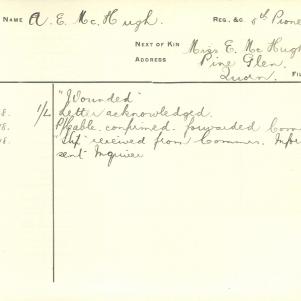 NAME A. E. Mc. Hugh. REG. &c. 8th Pione
NEXT OF KIN Miss E. Mc Hugh
ADDRESS Pine Glen,
Quorn. FI
"Wounded"
8. 1/L Letter acknowledged.
18. confirmed. forwarded Comm
18. received from Commrs. Infor
sent Inquirer